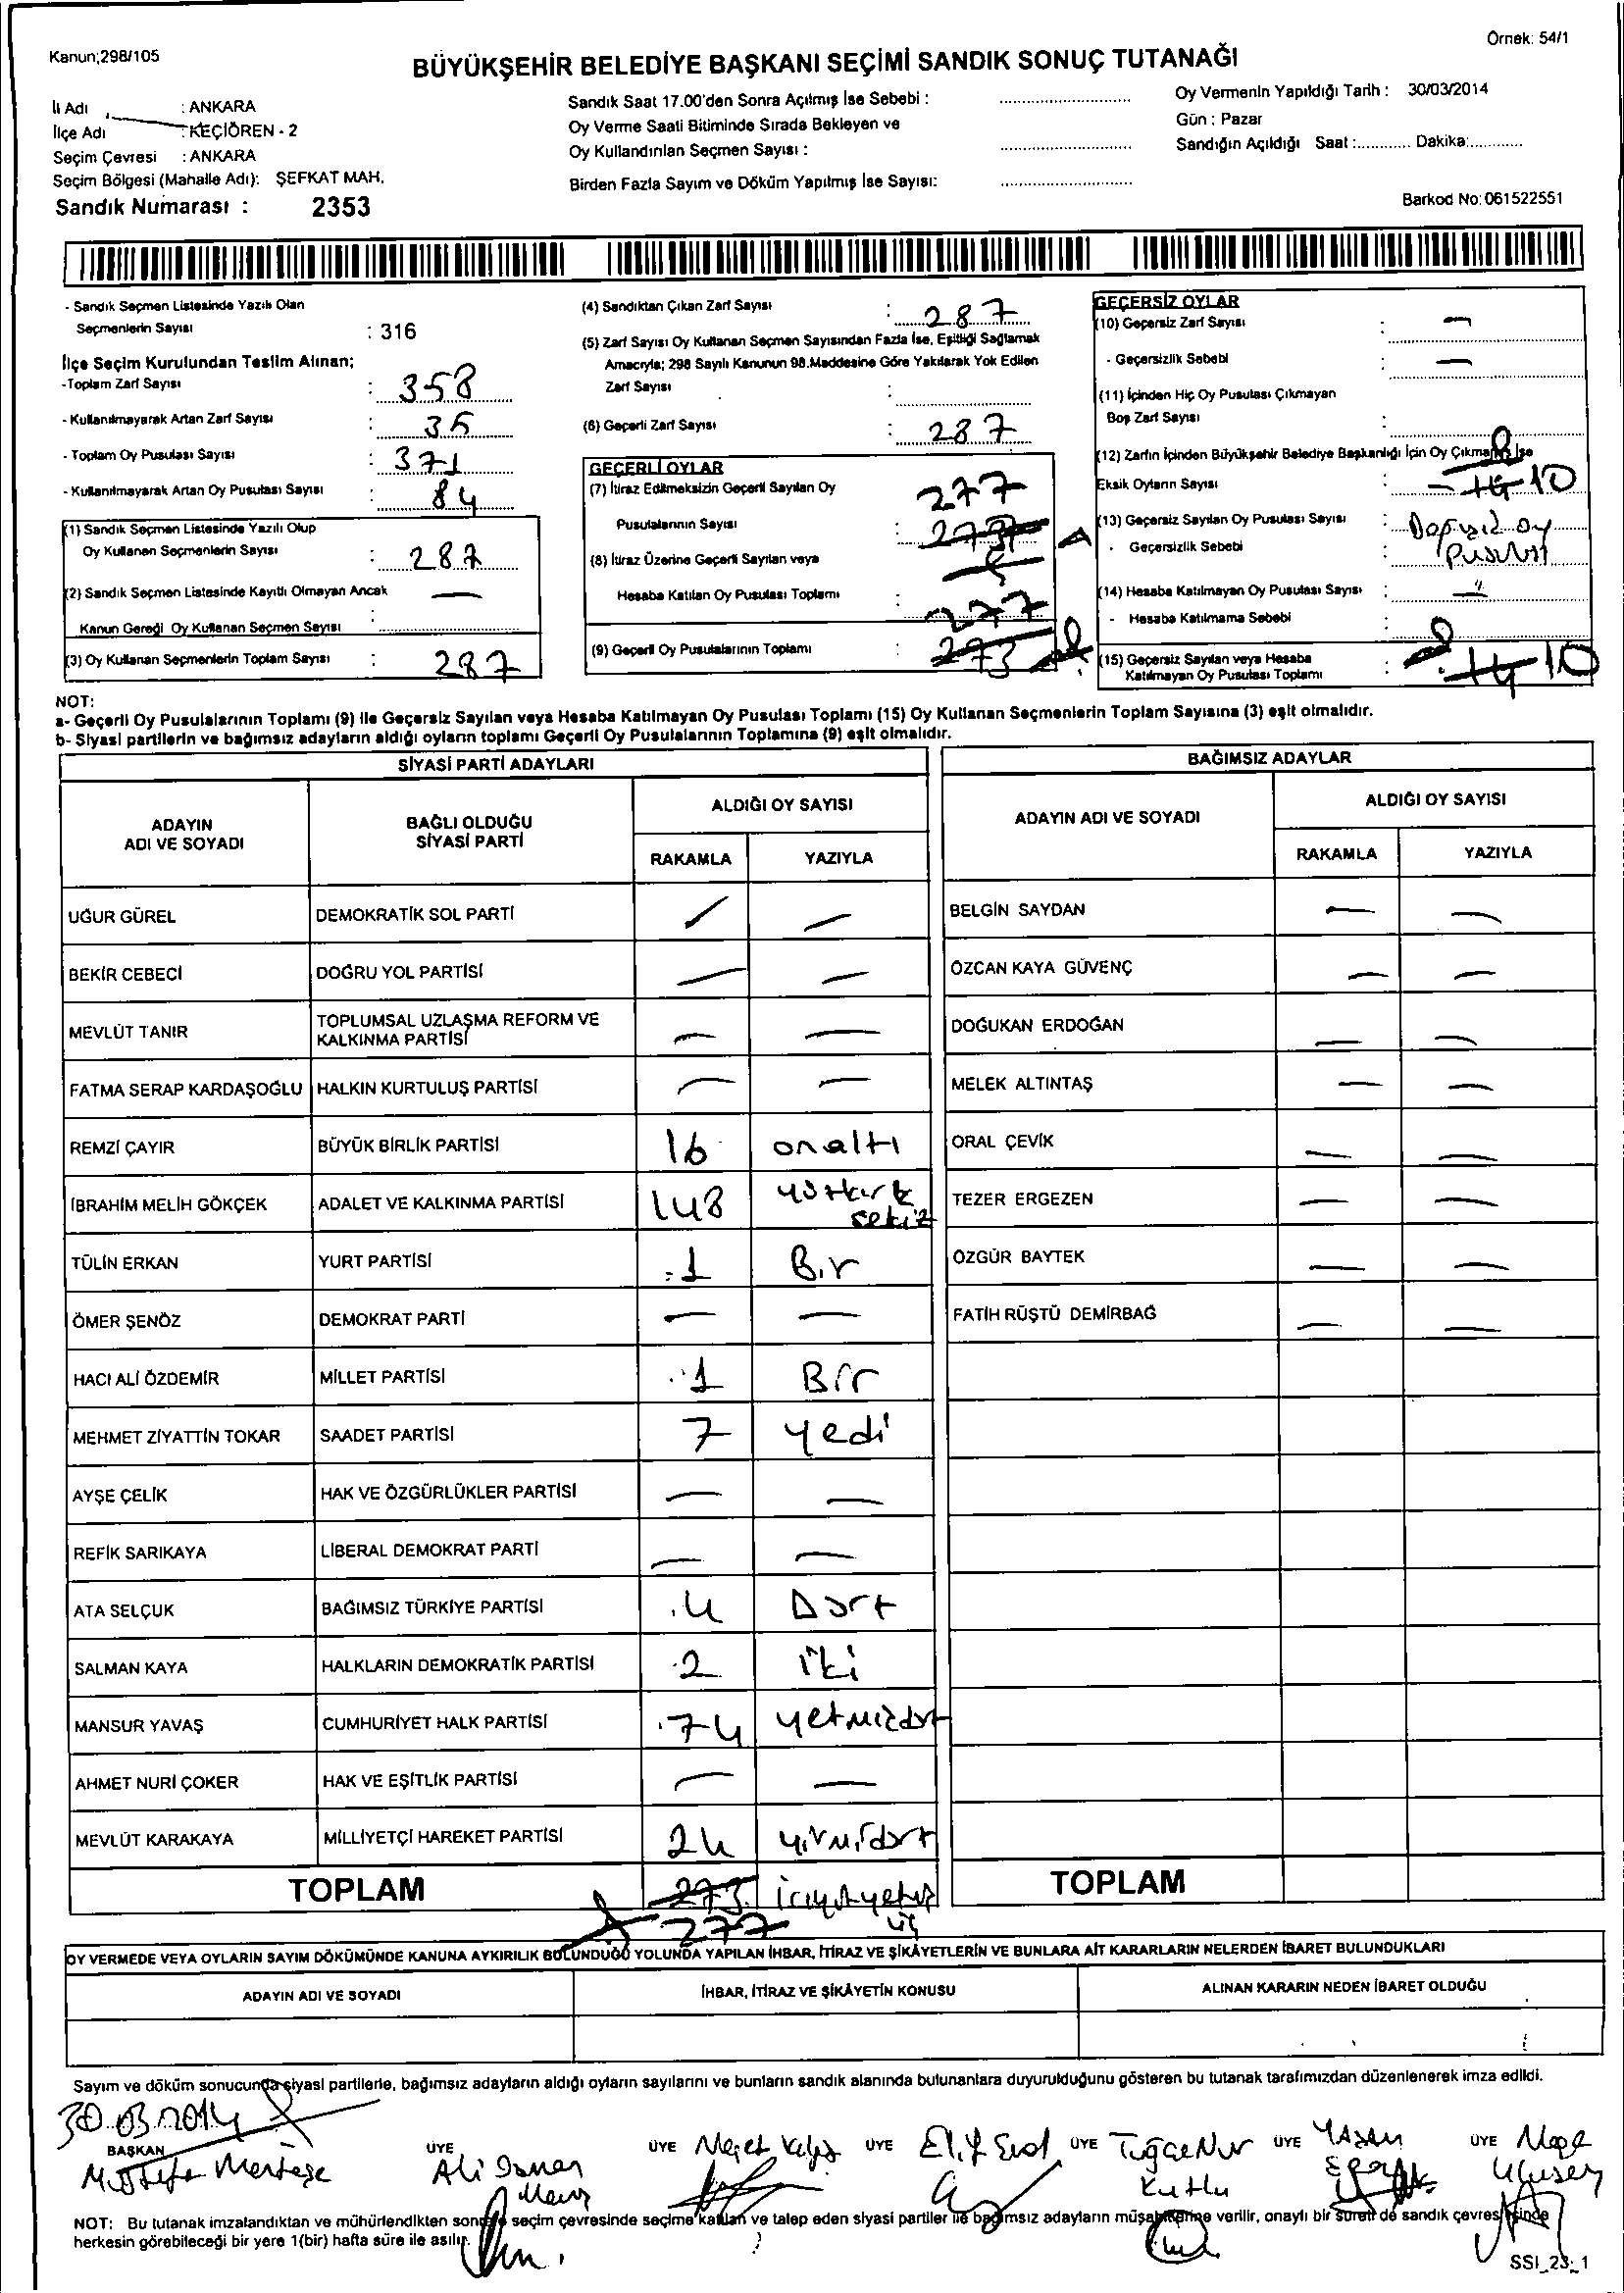 Kanun;298/105
Örnek: 54/1
BÜYÜKŞEHİR BELEDİYE BAŞKANI SEÇİMİ SANDIK SONUÇ TUTANAĞI
İli Adı : ANKARA
İlçe Adı : KEÇİÖREN - 2
Seçim Çevresi : ANKARA
Seçim Bölgesi (Mahalle Adı): ŞEFKAT MAH.
Sandık Numarası : 2353
Sandık Saat 17.00'den Sonra Açılmış İse Sebebi :
Oy Verme Saati Bitiminde Sırada Bekleyen ve
Oy Kullandırılan Seçmen Sayısı :
Birden Fazla Sayım ve Döküm Yapılmış İse Sayısı:
Oy Vermenin Yapıldığı Tarih : 30/03/2014
Gün : Pazar
Sandığın Açıldığı Saat :............ Dakika:............
Barkod No: 061522551
- Sandık Seçmen Listesinde Yazılı Olan
Seçmenlerin Sayısı : 316
İlçe Seçim Kurulundan Teslim Alınan;
-Toplam Zarf Sayısı : 358
- Kullanılmayarak Artan Zarf Sayısı : 35
- Toplam Oy Pusulası Sayısı : 371
- Kullanılmayarak Artan Oy Pusulası Sayısı : 84
(1) Sandık Seçmen Listesinde Yazılı Olup
Oy Kullanan Seçmenlerin Sayısı : 287
(2) Sandık Seçmen Listesinde Kayıtlı Olmayan Ancak —
Kanun Gereği Oy Kullanan Seçmen Sayısı :
(3) Oy Kullanan Seçmenlerin Toplam Sayısı : 287
(4) Sandıktan Çıkan Zarf Sayısı : 287
(5) Zarf Sayısı Oy Kullanan Seçmen Sayısından Fazla İse, Eşitliği Sağlamak
Amacıyla; 298 Sayılı Kanunun 98.Maddesine Göre Yakılarak Yok Edilen
Zarf Sayısı :
(6) Geçerli Zarf Sayısı : 287
GEÇERLİ OYLAR
(7) İtiraz Edilmeksizin Geçerli Sayılan Oy 277
Pusulalarının Sayısı : 273
(8) İtiraz Üzerine Geçerli Sayılan veya
Hesaba Katılan Oy Pusulası Toplamı :
277
(9) Geçerli Oy Pusulalarının Toplamı : 273
GEÇERSİZ OYLAR
(10) Geçersiz Zarf Sayısı : —
- Geçersizlik Sebebi : —
(11) İçinden Hiç Oy Pusulası Çıkmayan
Boş Zarf Sayısı :
(12) Zarfın İçinden Büyükşehir Belediye Başkanlığı İçin Oy Çıkmamış İse
Eksik Oyların Sayısı : 14 10
(13) Geçersiz Sayılan Oy Pusulası Sayısı : oy
- Geçersizlik Sebebi : Pusulası
(14) Hesaba Katılmayan Oy Pusulası Sayısı : —
- Hesaba Katılmama Sebebi :
(15) Geçersiz Sayılan veya Hesaba : 14 10
Katılmayan Oy Pusulası Toplamı
NOT:
a- Geçerli Oy Pusulalarının Toplamı (9) ile Geçersiz Sayılan veya Hesaba Katılmayan Oy Pusulası Toplamı (15) Oy Kullanan Seçmenlerin Toplam Sayısına (3) eşit olmalıdır.
b- Siyasi partilerin ve bağımsız adayların aldığı oyların toplamı Geçerli Oy Pusulalarının Toplamına (9) eşit olmalıdır.
SİYASİ PARTİ ADAYLARI
ADAYIN ADI VE SOYADI
BAĞLI OLDUĞU SİYASİ PARTİ
ALDIĞI OY SAYISI
RAKAMLA YAZIYLA
UĞUR GÜREL DEMOKRATİK SOL PARTİ — —
BEKİR CEBECİ DOĞRU YOL PARTİSİ — —
MEVLÜT TANIR TOPLUMSAL UZLAŞMA REFORM VE KALKINMA PARTİSİ — —
FATMA SERAP KARDAŞOĞLU HALKIN KURTULUŞ PARTİSİ — —
REMZİ ÇAYIR BÜYÜK BİRLİK PARTİSİ 16 onaltı
İBRAHİM MELİH GÖKÇEK ADALET VE KALKINMA PARTİSİ 148 yüzkırk sekiz
TÜLİN ERKAN YURT PARTİSİ 1 Bir
ÖMER ŞENÖZ DEMOKRAT PARTİ — —
HACI ALİ ÖZDEMİR MİLLET PARTİSİ 1 Bir
MEHMET ZİYATTİN TOKAR SAADET PARTİSİ 7 yedi
AYŞE ÇELİK HAK VE ÖZGÜRLÜKLER PARTİSİ — —
REFİK SARIKAYA LİBERAL DEMOKRAT PARTİ — —
ATA SELÇUK BAĞIMSIZ TÜRKİYE PARTİSİ 4 Dört
SALMAN KAYA HALKLARIN DEMOKRATİK PARTİSİ 2 iki
MANSUR YAVAŞ CUMHURİYET HALK PARTİSİ 74 yetmizdört
AHMET NURİ ÇOKER HAK VE EŞİTLİK PARTİSİ — —
MEVLÜT KARAKAYA MİLLİYETÇİ HAREKET PARTİSİ 24 yirmidört
TOPLAM 273
277 üç
BAĞIMSIZ ADAYLAR
ADAYIN ADI VE SOYADI
ALDIĞI OY SAYISI
RAKAMLA YAZIYLA
BELGİN SAYDAN — —
ÖZCAN KAYA GÜVENÇ — —
DOĞUKAN ERDOĞAN — —
MELEK ALTINTAŞ — —
ORAL ÇEVİK — —
TEZER ERGEZEN — —
ÖZGÜR BAYTEK — —
FATİH RÜŞTÜ DEMİRBAĞ — —
TOPLAM
OY VERMEDE VEYA OYLARIN SAYIM DÖKÜMÜNDE KANUNA AYKIRILIK BULUNDUĞU YOLUNDA YAPILAN İHBAR, İTİRAZ VE ŞİKÂYETLERİN VE BUNLARA AİT KARARLARIN NELERDEN İBARET BULUNDUKLARI
ADAYIN ADI VE SOYADI İHBAR, İTİRAZ VE ŞİKÂYETİN KONUSU ALINAN KARARIN NEDEN İBARET OLDUĞU
Sayım ve döküm sonucunda siyasi partilerle, bağımsız adayların aldığı oyların sayılarını ve bunların sandık alanında bulunanlara duyurulduğunu gösteren bu tutanak tarafımızdan düzenlenerek imza edildi.
30.03.2014
BAŞKAN ÜYE ÜYE ÜYE Elif ÜYE TuğçeNur ÜYE ÜYE
Mustafa Ali Kutlu
NOT: Bu tutanak imzalandıktan ve mühürlendikten sonra seçim çevresinde seçime katılan ve talep eden siyasi partiler ile bağımsız adayların müşahitlerine verilir, onaylı bir sureti de sandık çevresinde
herkesin görebileceği bir yere 1(bir) hafta süre ile asılır.
SSI_23_1